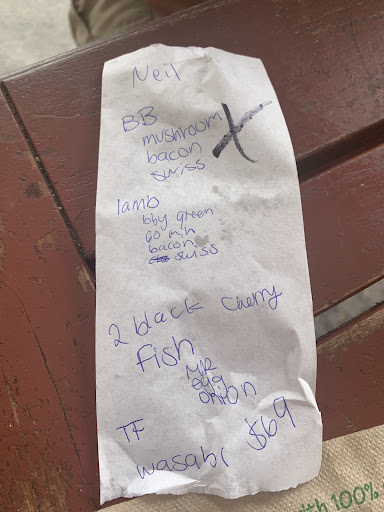 Neil
BB
mushroom
bacon
swiss
lamb
bby green
60 min
bacon
swiss
2 black cherry
fish
MR
egg
onion
TF
wasabi $69
with 100%